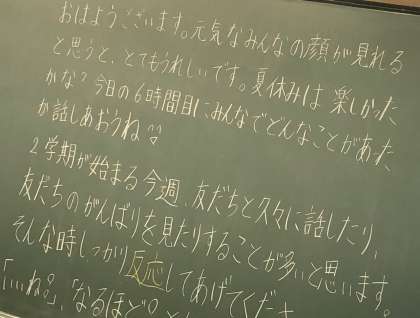 おはようございます。元気なみんなの顔が見れる
と思うと、とてもうれしいです。夏休みは楽しかった
かな？今日の6時間目にみんなでどんなことがあった
か話しあおうね
2学期が始まる今週、友だちと久々に話したり、
友だちのがんばりを見たりすることが多いと思います。
そんな時しっかり反応してあげてくださ
「いいね!」、「なるほど!